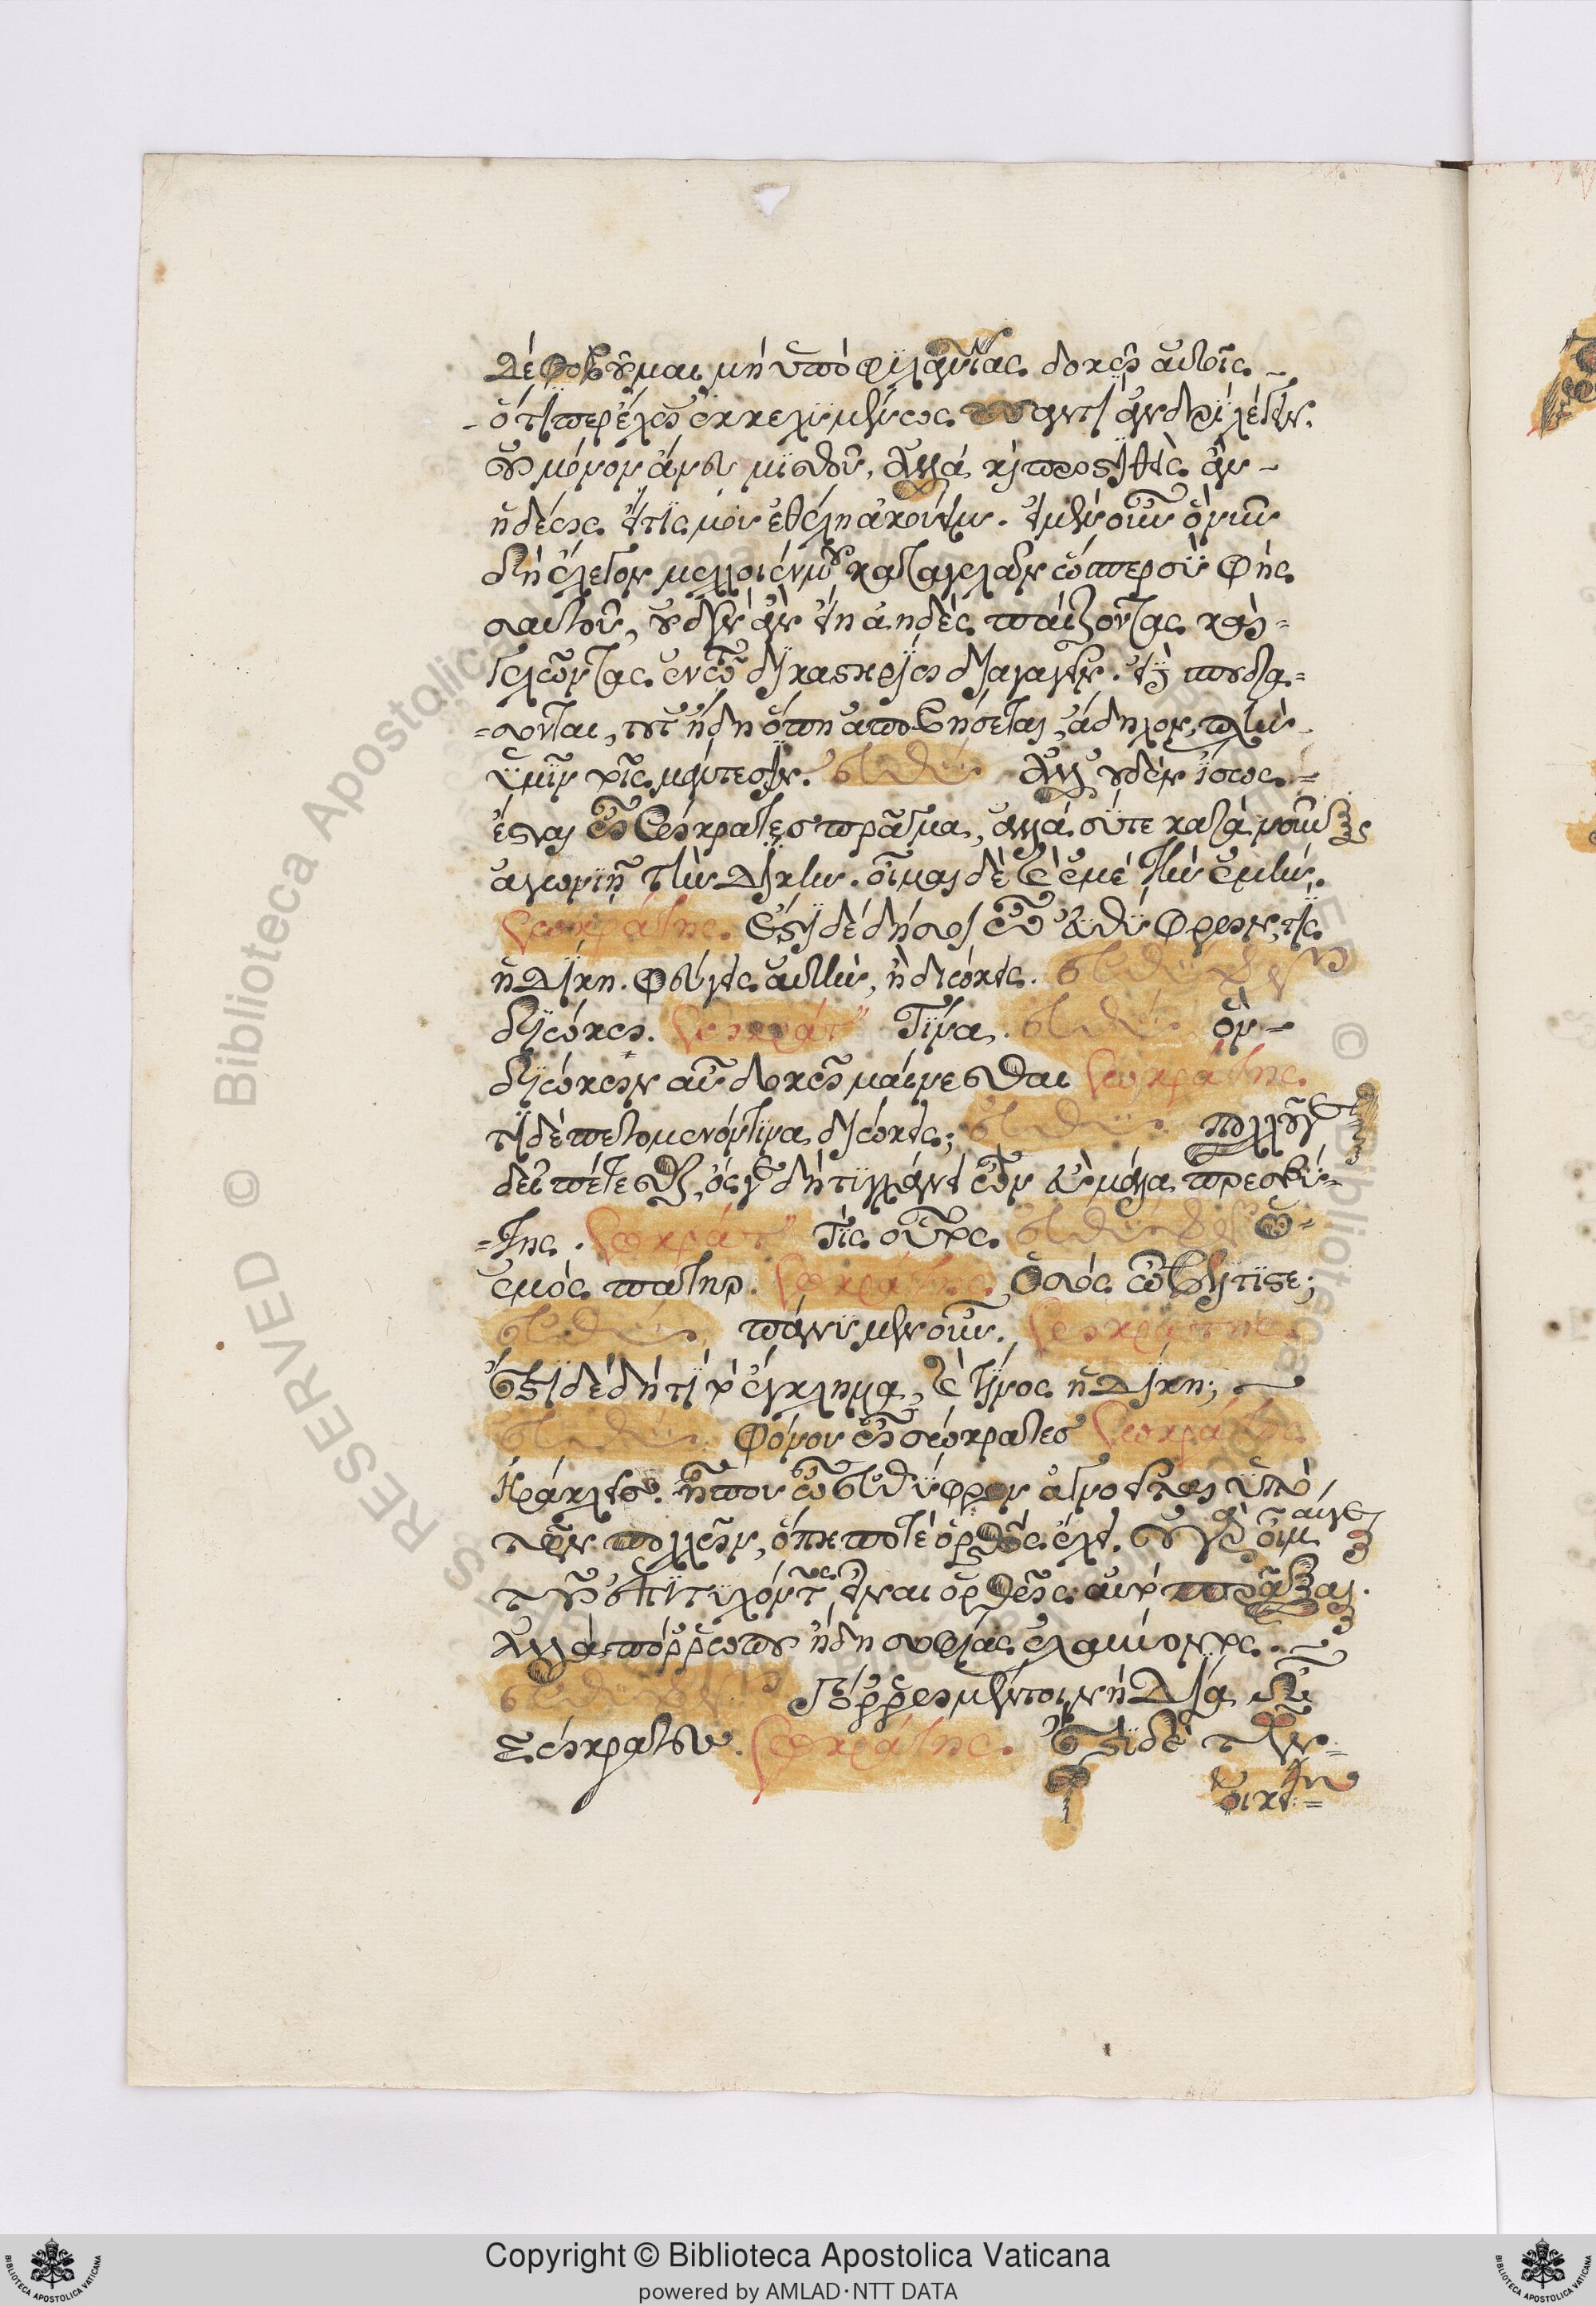 δὲ φοβοῦμαι μὴ ὑπὸ φιλανθρωπίας δοκῶ αὐτοῖς
ὅτι περ ἔχω ἐκκεχυμένως παντὶ ἀνδρὶ λέγειν.
οὐ μόνον ἄνευ μισθοῦ, ἀλλὰ καὶ προστιθεὶς ἂν
ἡδέως εἴ τίς μου ἐθέλῃ ἀκούειν. εἰ μὲν οὖν ὃ νῦν
δὴ ἔλεγον μέλλοιέν μου καταγελᾶν ὥσπερ σὺ φῂς
σαυτοῦ, οὐδὲν ἂν εἴη ἀηδὲς παίζοντας καὶ
γελῶντας ἐν τῷ δικαστηρίῳ διαγαγεῖν. εἰ δὲ σπουδά-
σονται, τοῦτ' ἤδη ὅπη ἀποβήσεται, ἄδηλον, πλὴν
ὑμῖν τοῖς μάντεσιν. εὐθύ ἀλλ' οὐδὲν ἴσως
ἔσται ὦ Σώκρατες πρᾶγμα, ἀλλὰ σύ τε κατὰ νοῦν
ἀγωνιῇ τὴν δίκην. οἶμαι δὲ καὶ ἐμὲ τὴν ἐμήν.
Σωκράτης. ἔστι δὲ δή σοι ὦ εὐθύφρων, τίς
ἡ δίκη. φεύγεις αὐτήν, ἢ διώκεις. εὐθύφρων
διώκω. Σωκράτ τίνα. εὐθύ ὃν
διώκων αὖ δοκῶ μαίνεσθαι Σωκράτης.
τί δὲ πετόμενόν τινα διώκεις; εὐθύ πολλοῦ γε
δεῖ πέτεσθαι, ὅς γε δὴ τυγχάνει ὢν εὖ μάλα πρεσβύ-
της. Σωκράτ τίς οὗτος. εὐθύφρ ὁ
ἐμὸς πατήρ. Σωκράτης. ὁ σὸς ὦ βέλτιστε;
εὐθύ πάνυ μὲν οὖν. Σωκράτης
ἔστι δὲ δὴ τί τὸ ἔγκλημα, καὶ τίνος ἡ δίκη;
εὐθύ φόνου ὦ σώκρατες Σωκράτης
Ἡράκλεις. ἦ που ὦ εὐθύφρον ἀγνοεῖται ὑπὸ
τῶν πολλῶν, ὅπη ποτὲ ὀρθῶς ἔχει. οὐ γὰρ οἶμαί γε
τοῦ ἐπιτυχόντος εἶναι ὀρθῶς αὐτὸ πρᾶξαι.
ἀλλὰ πόρρω που ἤδη σοφίας ἐλαύνοντος.
εὐθύφρ Πόρρω μέντοι νὴ Δία ὦ
Σώκρατες. Σωκράτης. ἔστι δὲ τῶν
οἰκεί